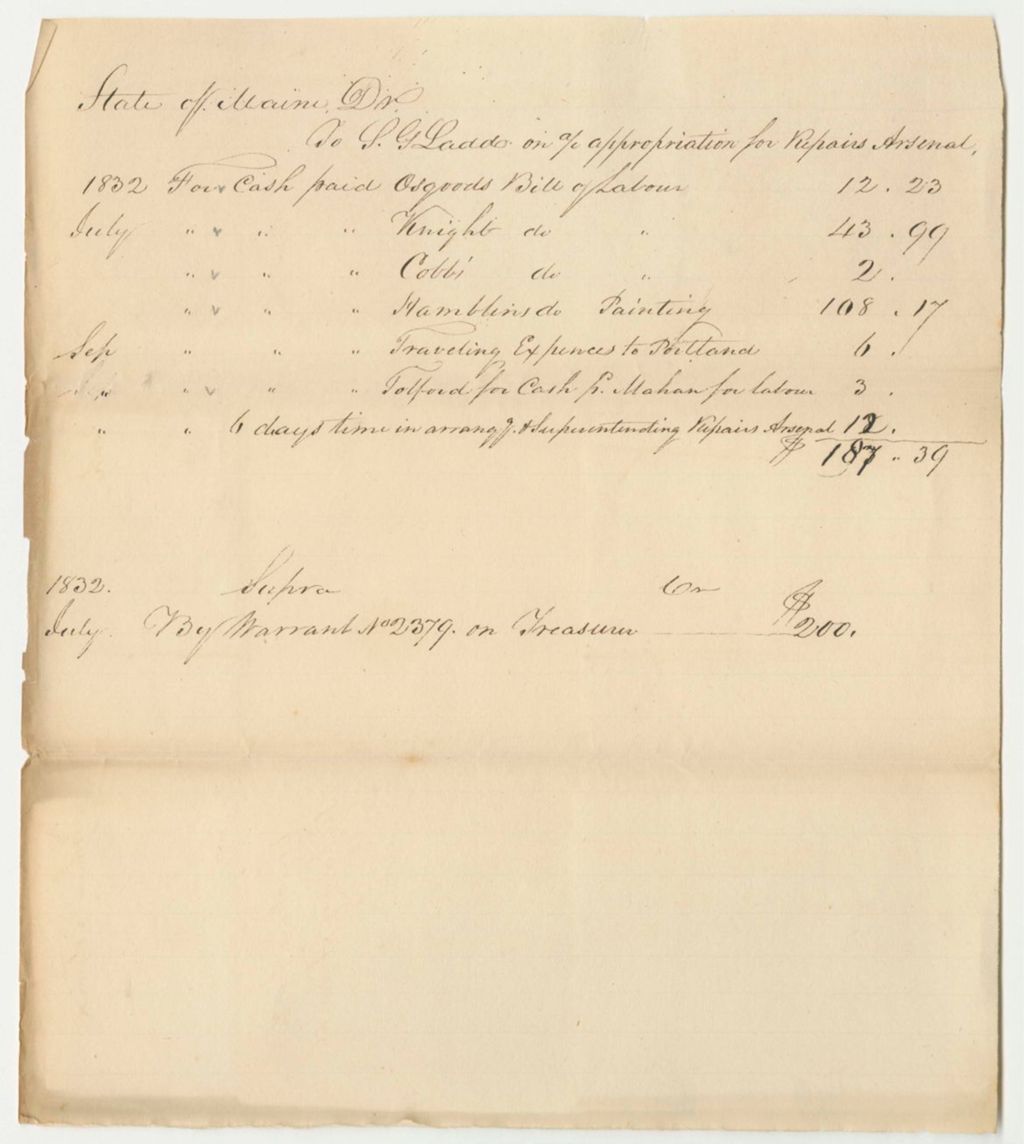 State of Maine Dr
To S. G Ladd on a/c appropriation for Repairs Arsenal,
1832 For Cash paid Osgoods Bill of Labour 12.23
July " " " Knight do " 43.99
" " " Cobbs do " 2.
" " " Hamblins do Painting 108.17
Sep " " " Traveling Expences to Portland 6.
" " " Tolford for Cash p. Mahan for labour 3.
" " 6 days time in arrang g. & Superintending Repairs Arsenal 12.
$ 187.39
1832. Supra Cr
July. By Warrant No 2379. on Treasurer $200.